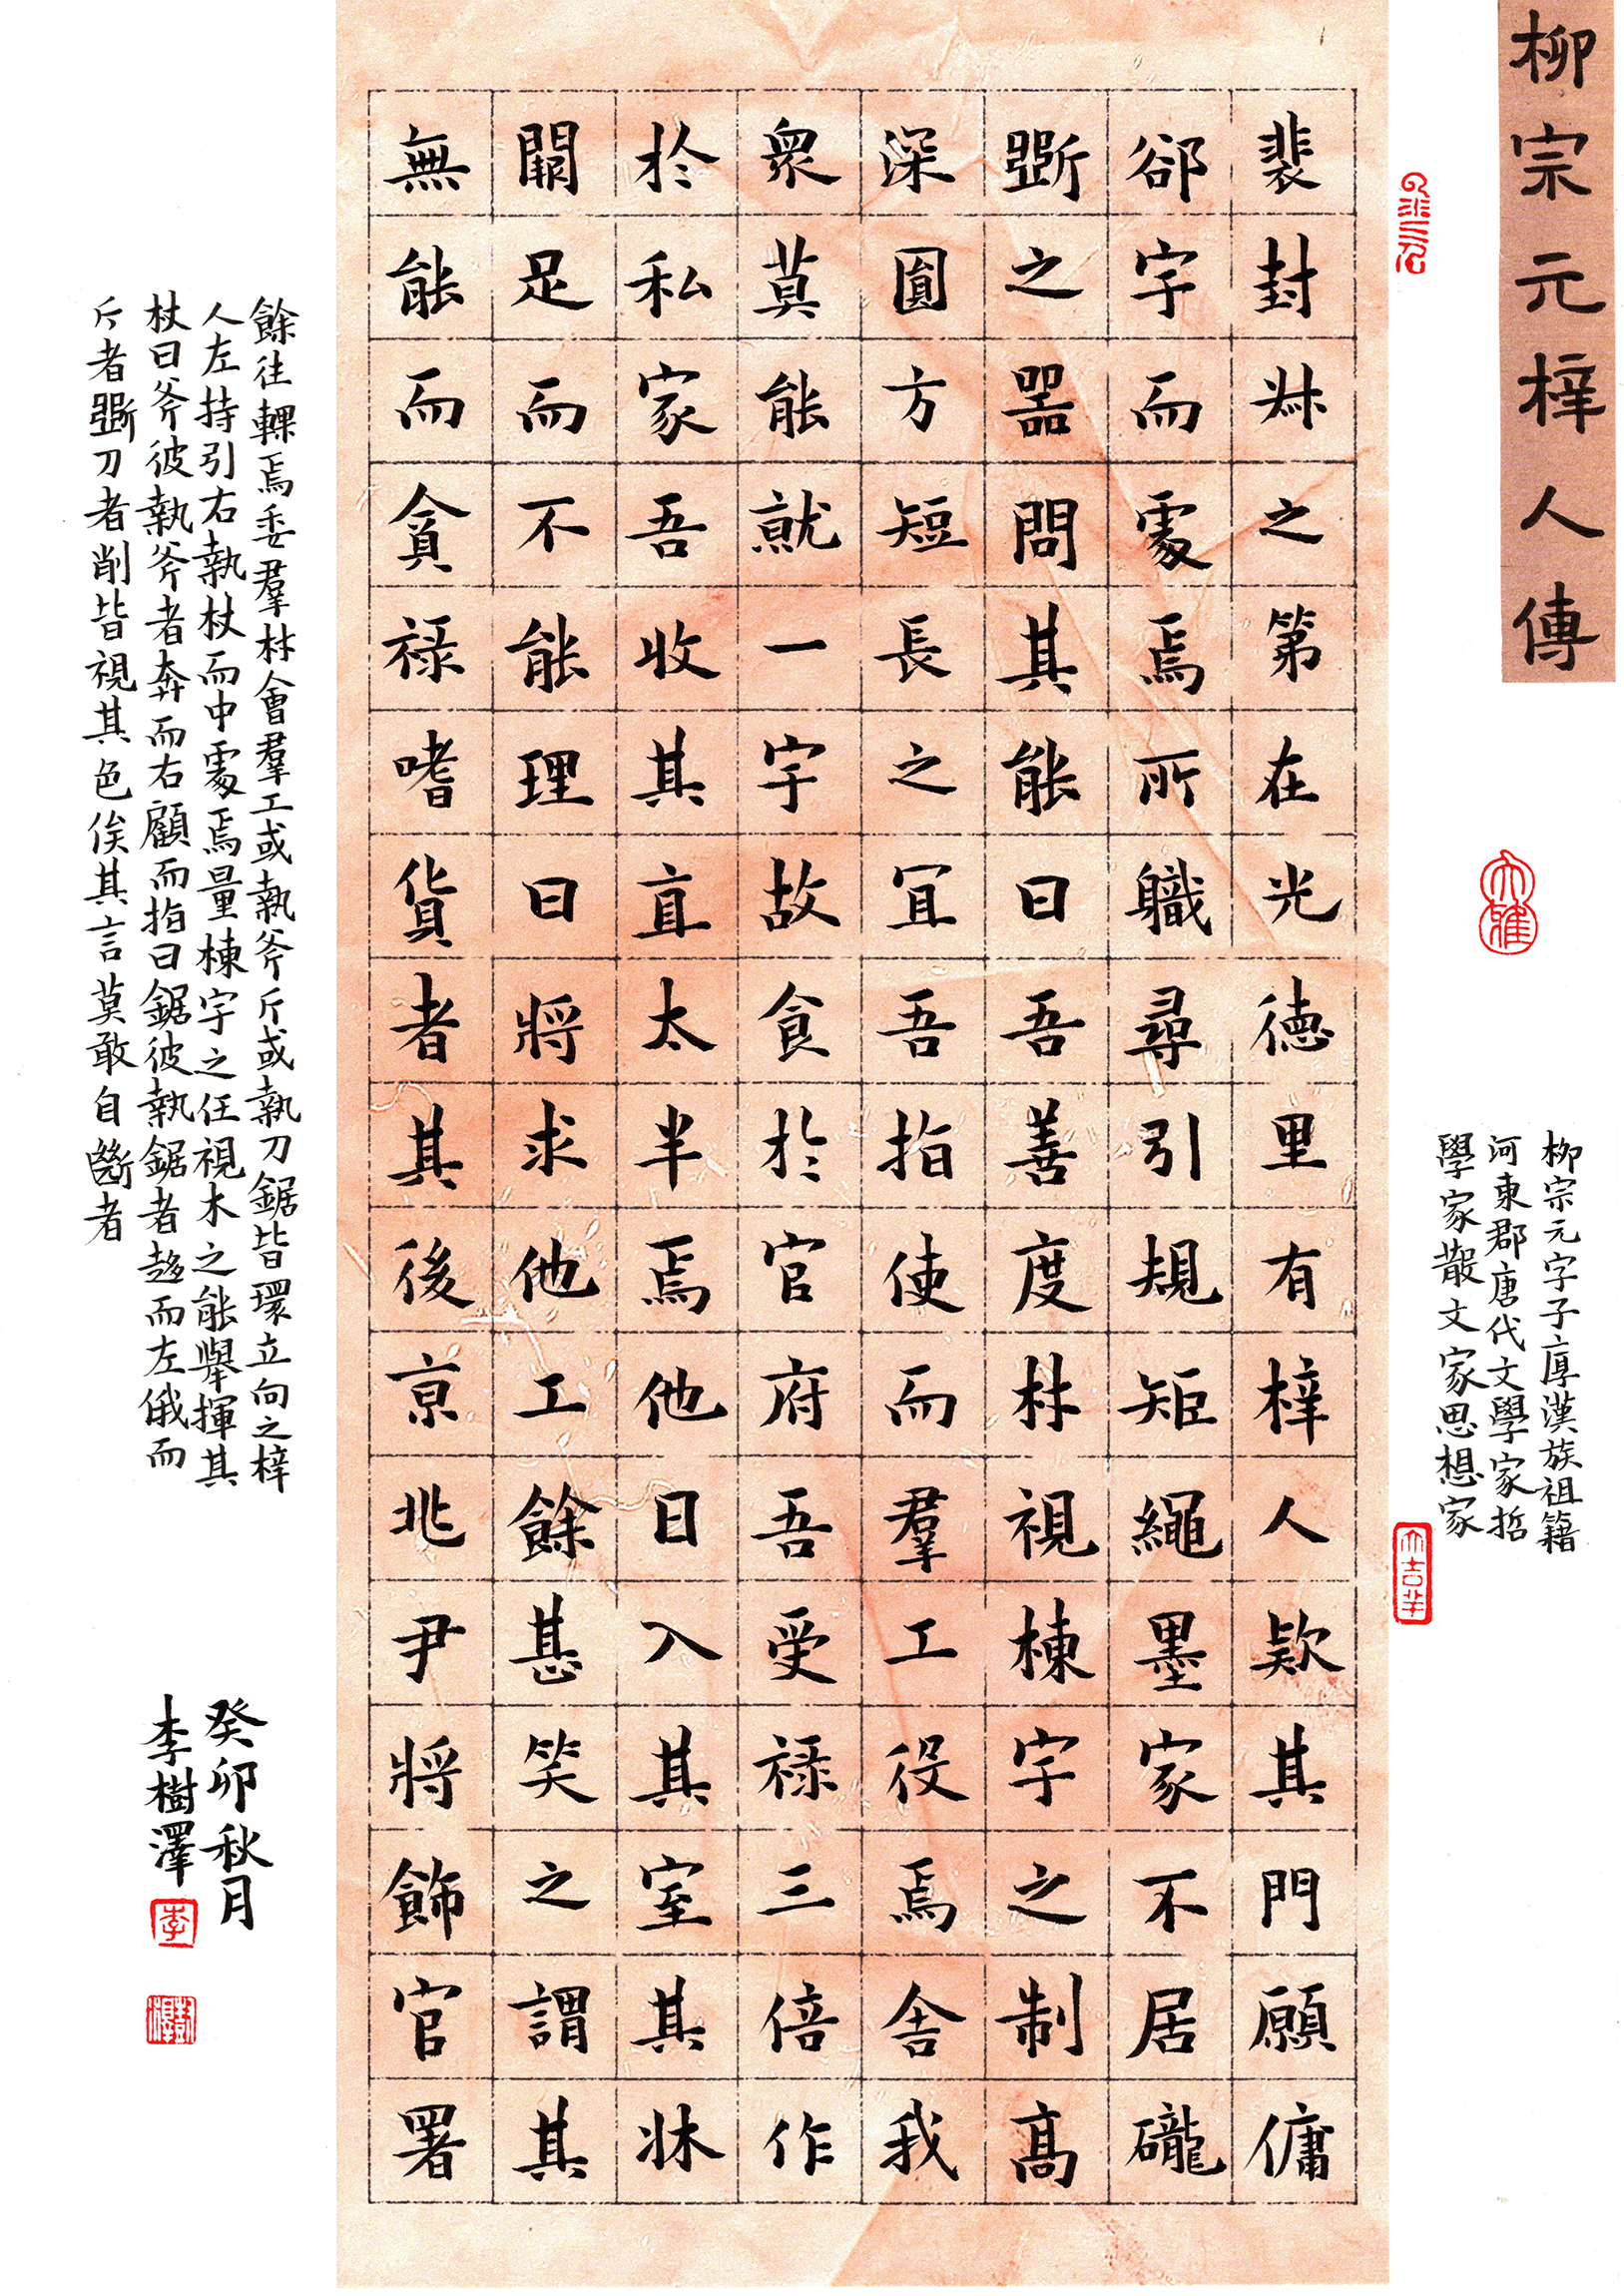 柳宗元梓人傳
柳宗元字子厚漢族祖籍
河東郡唐代文學家哲
學家散文家思想家
裴封叔之第在光德里有梓人款其門願傭
郤宇而處焉所職尋引規矩繩墨家不居礲
斲之器問其能曰吾善度材視棟宇之制高
深圓方短長之宜吾指使而羣工役焉舍我
衆莫能就一宇故食於官府吾受祿三倍作
於私家吾收其直太半焉他日入其室其牀
闕足而不能理曰將求他工餘甚笑之謂其
無能而貪祿嗜貨者其後京兆尹將飾官署
餘往輠焉委羣材會羣工或執斧斤或執刀鋸皆環立向之梓
人左持引右執杖而中處焉量棟宇之任視木之能舉揮其
杖曰斧彼執斧者奔而右顧而指曰鋸彼執鋸者趨而左俄而
斤者斲刀者削皆視其色俟其言莫敢自斷者
癸卯秋月
李樹澤
大雅
李